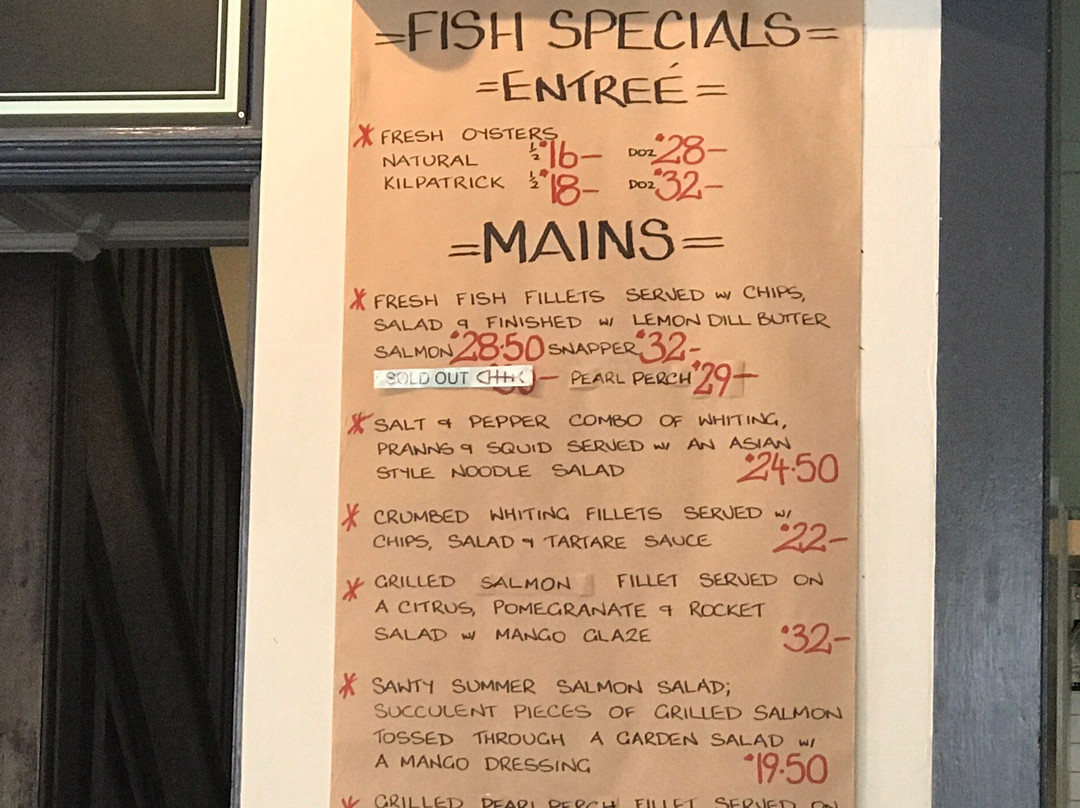 =FISH SPECIALS=
=ENTREÉ=
* FRESH OYSTERS
NATURAL ½ $16— DOZ $28—
KILPATRICK ½ $18— DOZ $32—
=MAINS=
* FRESH FISH FILLETS SERVED w/ CHIPS,
SALAD & FINISHED w/ LEMON DILL BUTTER
SALMON $28·50 SNAPPER $32—
SOLD OUT — PEARL PERCH $29—
* SALT & PEPPER COMBO OF WHITING,
PRAWNS & SQUID SERVED w/ AN ASIAN
STYLE NOODLE SALAD $24·50
* CRUMBED WHITING FILLETS SERVED w/
CHIPS, SALAD & TARTARE SAUCE $22—
* GRILLED SALMON FILLET SERVED ON
A CITRUS, POMEGRANATE & ROCKET
SALAD w/ MANGO GLAZE $32—
* SAWTY SUMMER SALMON SALAD;
SUCCULENT PIECES OF GRILLED SALMON
TOSSED THROUGH A GARDEN SALAD w/
A MANGO DRESSING $19·50
* GRILLED PEARL PERCH FILLET SERVED ON